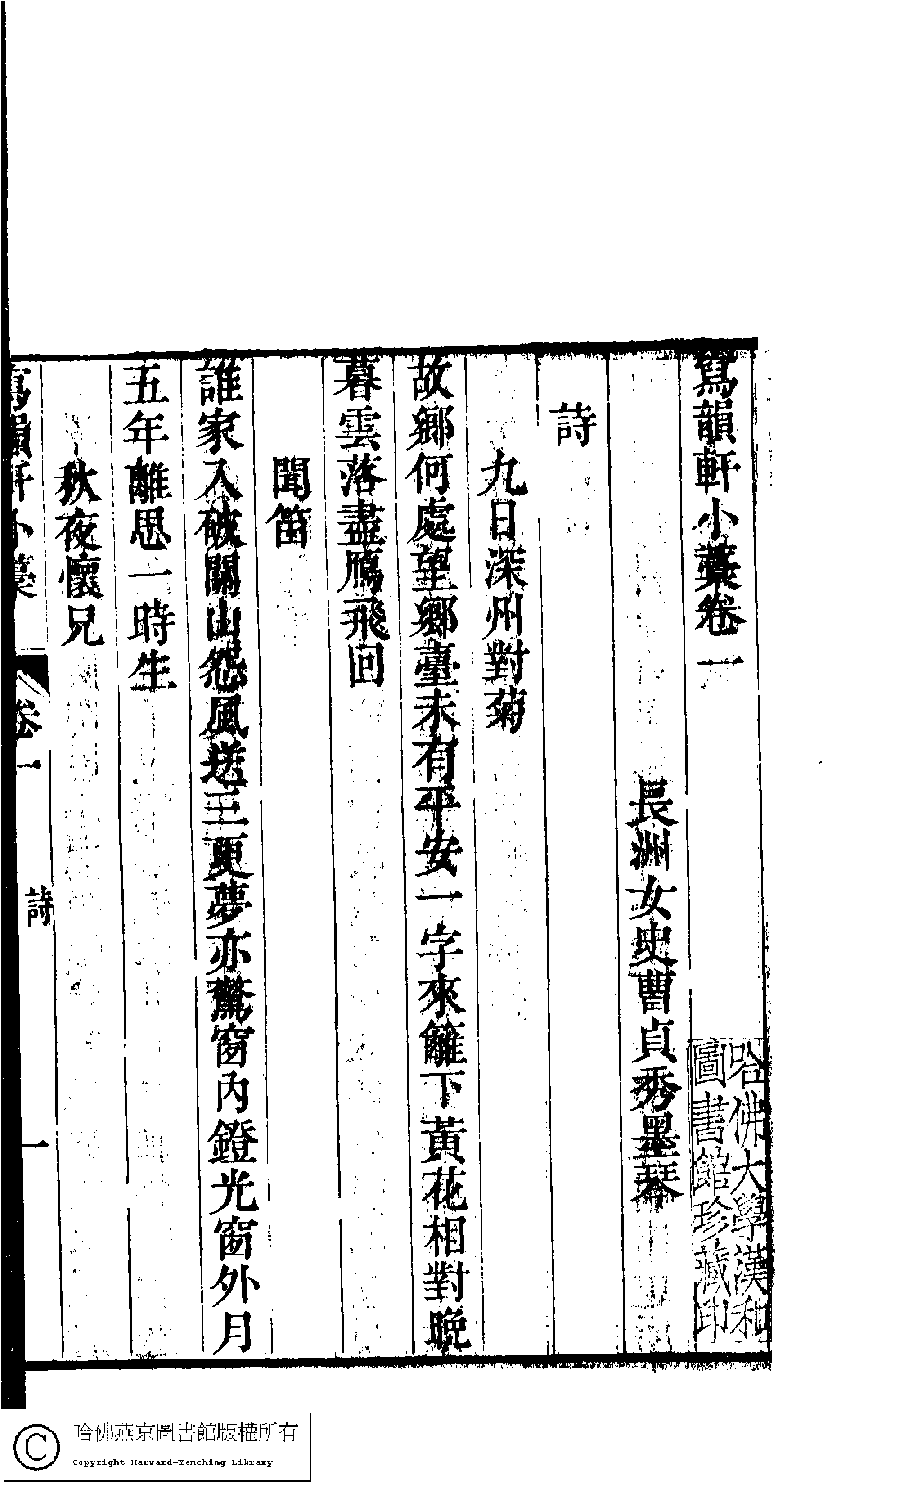 寫韻軒小藁卷一
長洲女史曹貞秀墨琴
詩
九日深州對菊
故鄉何處望鄉臺未有平安一字來籬下黃花相對晚
暮雲落盡鴈飛回
聞笛
誰家入破關山怨風送三更夢亦驚窗內鐙光窗外月
五年離思一時生
秋夜懷兄
寫韻軒小藁
卷一
詩
一
哈佛大學漢和
圖書館珍藏印
哈佛燕京圖書館版權所有
Copyright Harvard-Yenching Library